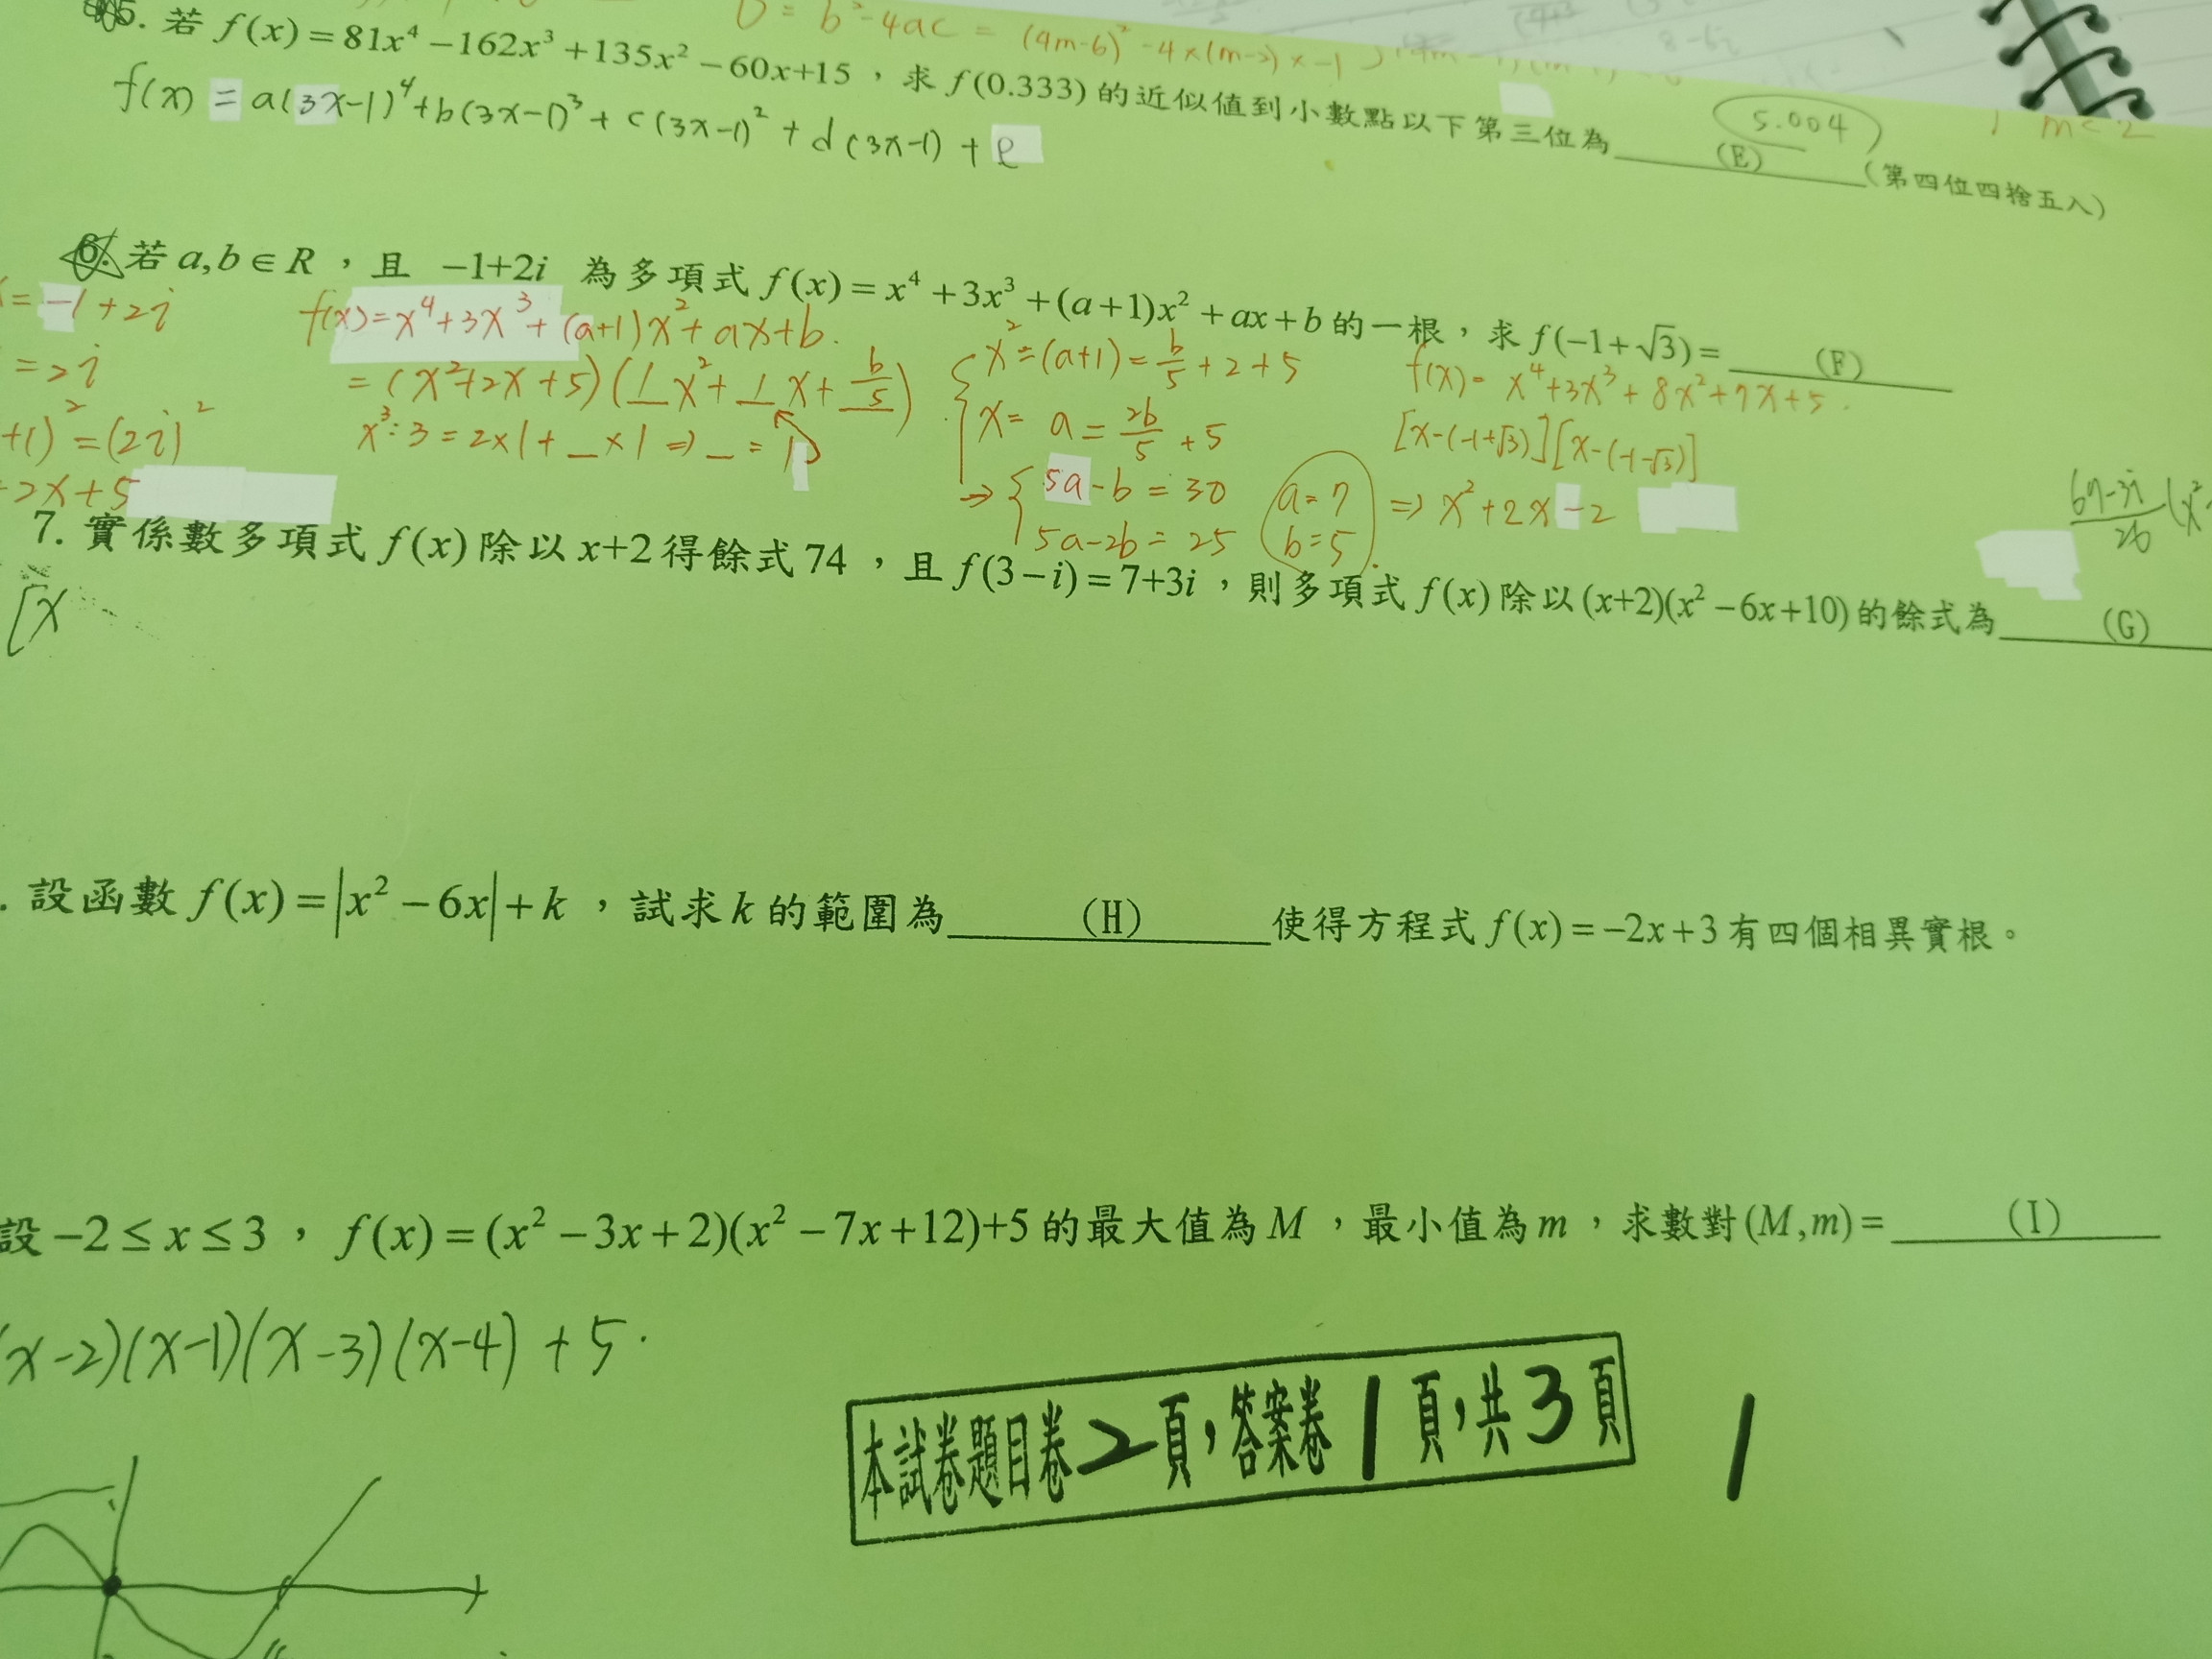 D = b²-4ac = (4m-6)²-4×(m-2)×-1
5. 若 f(x)=81x⁴-162x³+135x²-60x+15，求 f(0.333) 的近似值到小數點以下第三位為 (E) (第四位四捨五入)
5.004
m<2
f(x) = a(3x-1)⁴+b(3x-1)³+c(3x-1)²+d(3x-1)+e
6. 若 a,b∈R，且 -1+2i 為多項式 f(x)=x⁴+3x³+(a+1)x²+ax+b 的一根，求 f(-1+√3)= (F)
= -1+2i
= 2i
+1)²=(2i)²
2x+5
f(x)=x⁴+3x³+(a+1)x²+ax+b.
=(x²+2x+5)(1x²+1x+b/5)
x³:3=2×1+_×1⇒_=1
x²=(a+1)=b/5+2+5
x= a=2b/5+5
⇒{5a-b=30
5a-2b=25
a=7
b=5
f(x)=x⁴+3x³+8x²+7x+5.
[x-(-1+√3)][x-(-1-√3)]
⇒x²+2x-2
7. 實係數多項式 f(x) 除以 x+2 得餘式 74，且 f(3-i)=7+3i，則多項式 f(x) 除以 (x+2)(x²-6x+10) 的餘式為 (G)
[x
. 設函數 f(x)=|x²-6x|+k，試求 k 的範圍為 (H) 使得方程式 f(x)=-2x+3 有四個相異實根。
設 -2≤x≤3，f(x)=(x²-3x+2)(x²-7x+12)+5 的最大值為 M，最小值為 m，求數對 (M,m)= (I)
(x-2)(x-1)(x-3)(x-4)+5.
本試卷題目卷2頁，答案卷1頁，共3頁
1